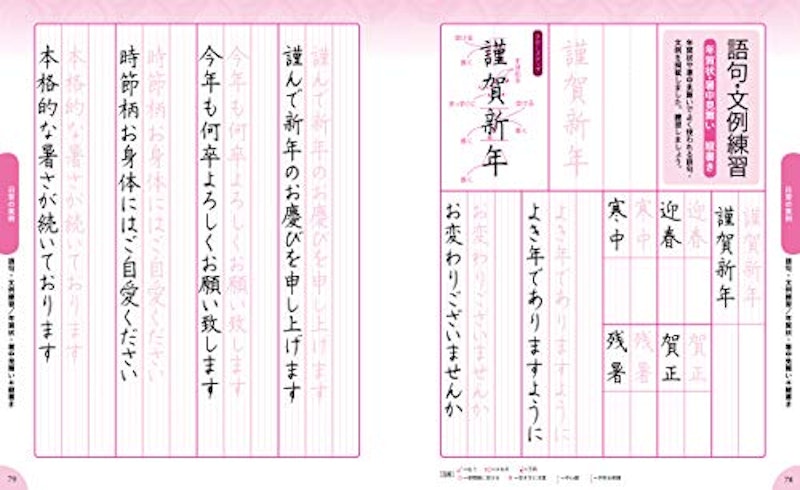 語句・文例練習
年賀状・暑中見舞い 縦書き
年賀状や暑中見舞いでよく使われる語句・
文例を掲載しました。練習しましょう。
謹賀新年
謹賀新年
謹賀新年
謹賀新年
迎春
迎春
賀正
賀正
寒中
寒中
残暑
残暑
よき年でありますように
よき年でありますように
お変わりございませんか
お変わりございませんか
78
謹んで新年のお慶びを申し上げます
謹んで新年のお慶びを申し上げます
今年も何卒よろしくお願い致します
今年も何卒よろしくお願い致します
時節柄お身体にはご自愛ください
時節柄お身体にはご自愛ください
本格的な暑さが続いております
本格的な暑さが続いております
語句・文例練習/年賀状・暑中見舞い●縦書き
79